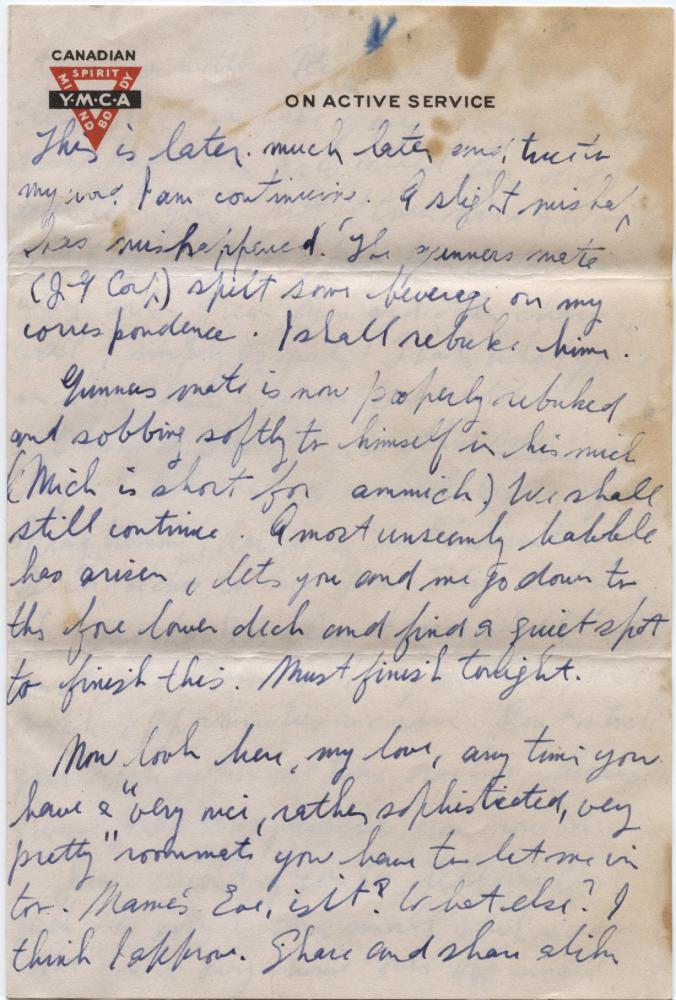 CANADIAN
SPIRIT
Y·M·C·A
MIND
BODY
ON ACTIVE SERVICE
This is later. much later and, trust
my word I am continuing. A slight misha
has mishappened. The gunners mate
( Corp) spilt some beverage on my
correspondence. I shall rebuke him.
Gunners mate is now properly rebuked
and sobbing softly to himself in his mick
(Mick is short for ammick) We shall
still continue. A most unseemly babble
has arisen, lets you and me go down to
the fore lower deck and find a quiet spot
to finish this. Must finish tonight.
Now look here, my love, any time you
have a "very nice, rather sophisticated, very
pretty" roommate you have to let me in
too. Name's Eve, is it? What else? I
think I approve. Share and share alike